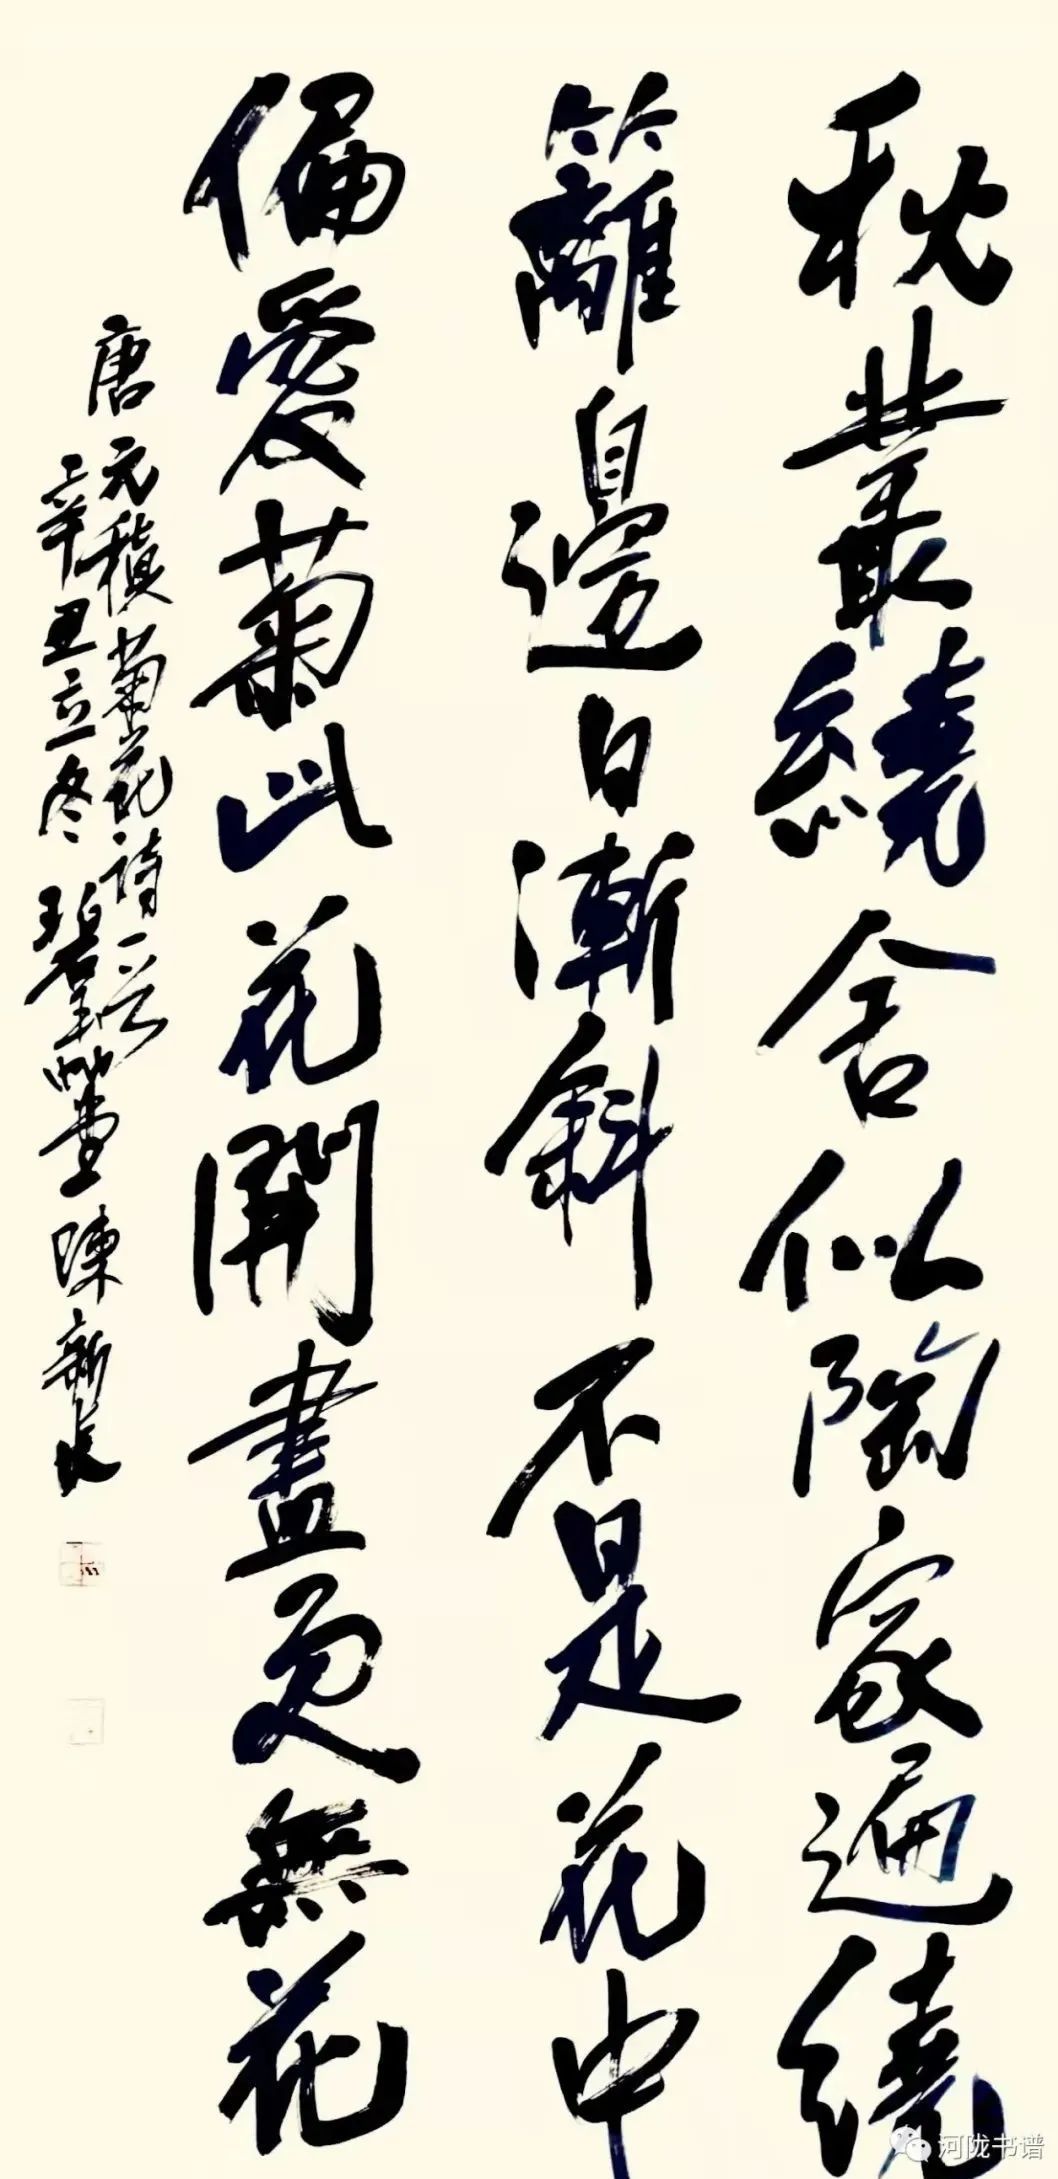 秋叢繞舍似陶家遍繞
籬邊日漸斜不是花中
偏愛菊此花開盡更無花
唐元稹菊花詩一首
辛丑立冬碧玉山堂陳新長
河陇书谱